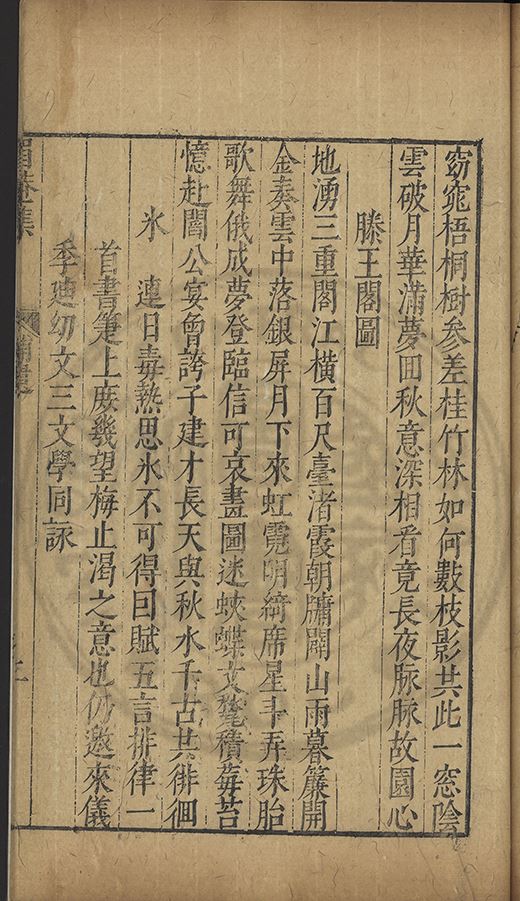 窈窕梧桐樹參差桂竹林如何數枝影共此一窓陰
雲破月華滿夢回秋意深相看竟長夜脉脉故園心
滕王閣圖
地湧三重閣江橫百尺臺渚霞朝牖闢山雨暮簾開
金奏雲中落銀屏月下來虹霓明綺席星斗弄珠胎
歌舞俄成夢登臨信可哀畫圖迷蛺蝶文甃積莓苔
憶赴閻公宴曾誇子建才長天與秋水千古共徘徊
氷 連日毒熱思氷不可得囙賦五言排律一
首書箑上庻幾望梅止渴之意也仍邀來儀
季廸幼文三文學同詠
眉菴集